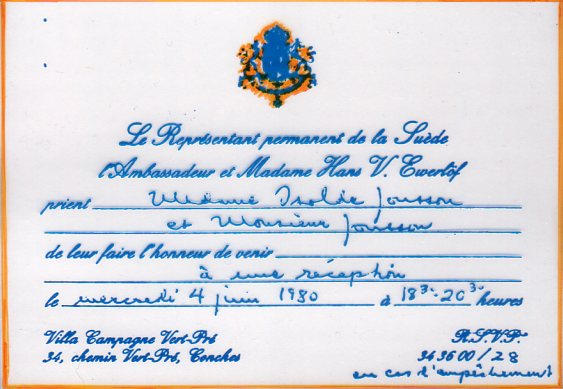 Le Représentant permanent de la Suède
l'Ambassadeur et Madame Hans V. Ewerlöf
prient Madame Isolde Jonsson
et Monsieur Jonsson
de leur faire l'honneur de venir
à une réception
le mercredi 4 juin 1980 à 18³⁰-20³⁰ heures
Villa Campagne Vert-Pré
34, chemin Vert-Pré, Conches
R.S.V.P.
34 36 00 / 28
en cas d'empêchement